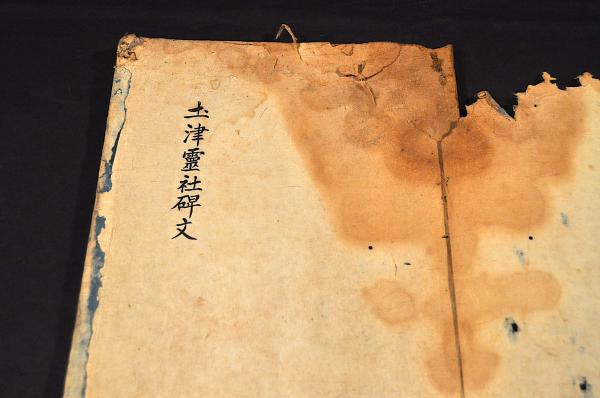 圡津靈社碑文